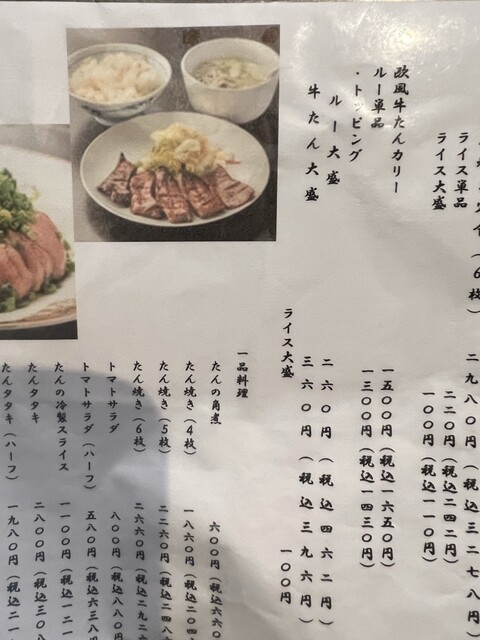 定食(6枚) 二九八〇円(税込三二七八円)
ライス単品 二二〇円(税込二四二円)
ライス大盛 一〇〇円(税込一一〇円)
欧風牛たんカリー 一五〇〇円(税込一六五〇円)
ルー単品 一三〇〇円(税込一四三〇円)
・トッピング
ルー大盛 二六〇円(税込四六二円)
牛たん大盛 三六〇円(税込三九六円)
ライス大盛 一〇〇円
一品料理
たんの角煮 六〇〇円(税込六六〇
たん焼き(4枚) 一八六〇円(税込二〇四
たん焼き(5枚) 二二六〇円(税込二四八
たん焼き(6枚) 二六六〇円(税込二九二
トマトサラダ 八〇〇円(税込八八〇
トマトサラダ(ハーフ) 五八〇円(税込六三八
たんの冷製スライス 一一〇〇円(税込一二一
たんタタキ 二八〇〇円(税込三〇八
たんタタキ(ハーフ) 一九八〇円(税込二一